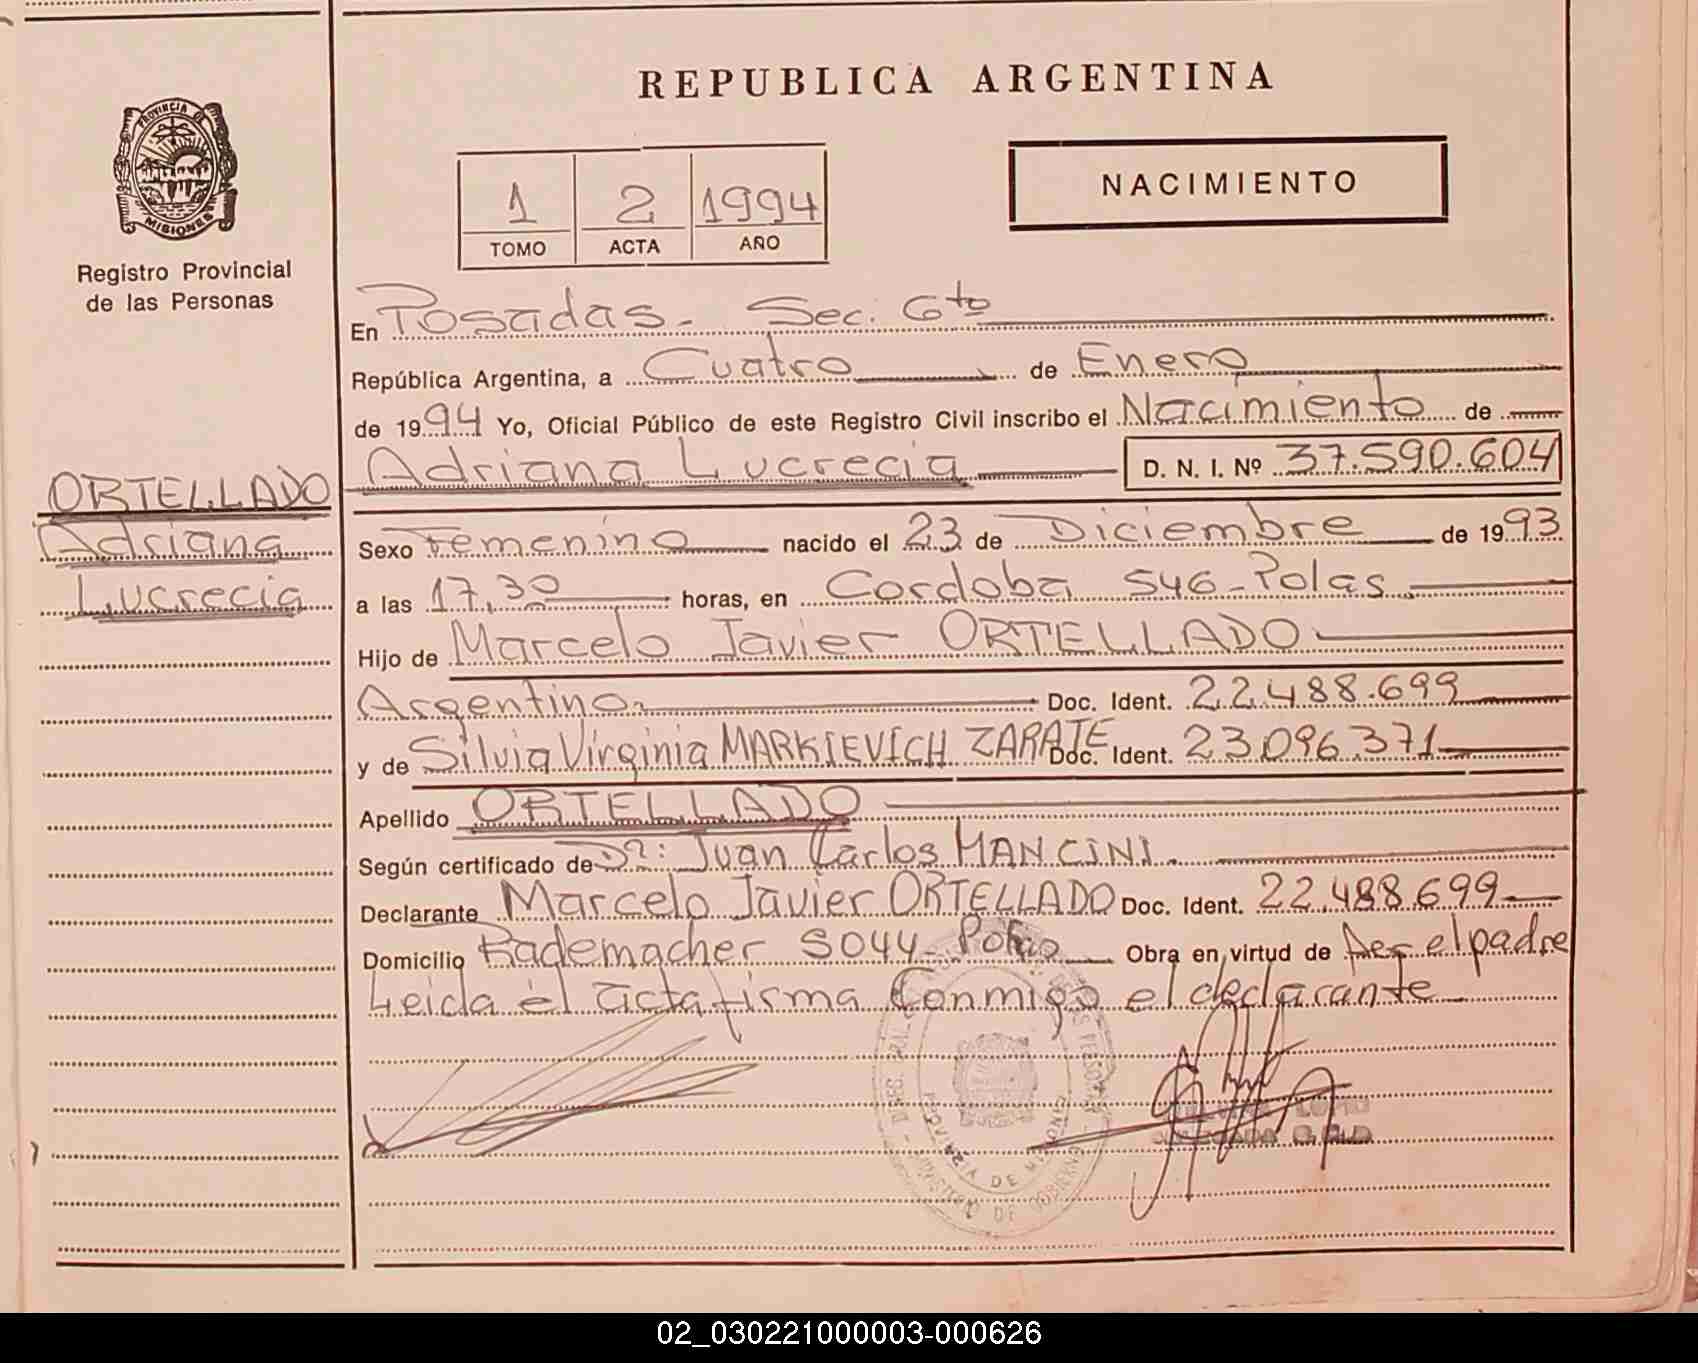 REPUBLICA ARGENTINA
PROVINCIA DE
MISIONES
Registro Provincial
de las Personas
1 2 1994
TOMO ACTA AÑO
NACIMIENTO
En Posadas - Sec. 6to
República Argentina, a Cuatro de Enero
de 1994 Yo, Oficial Público de este Registro Civil inscribo el Nacimiento de
ORTELLADO
Adriana
Lucrecia
Adriana Lucrecia D. N. I. Nº 37.590.604
Sexo Femenino nacido el 23 de Diciembre de 1993
a las 17,30 horas, en Cordoba 546-Polas
Hijo de Marcelo Javier ORTELLADO
Argentino Doc. Ident. 22.488.699
y de Silvia Virginia MARKIEVICH ZARATE Doc. Ident. 23.096.371
Apellido ORTELLADO
Según certificado de Dr: Juan Carlos MANCINI.
Declarante Marcelo Javier ORTELLADO Doc. Ident. 22.488.699
Domicilio Rademacher 5044- Obra en virtud de ser el padre
Leida el acta firma Conmigo el declarante
PROVINCIA DE MISIONES
MINISTERIO DE GOBIERNO
02_030221000003-000626